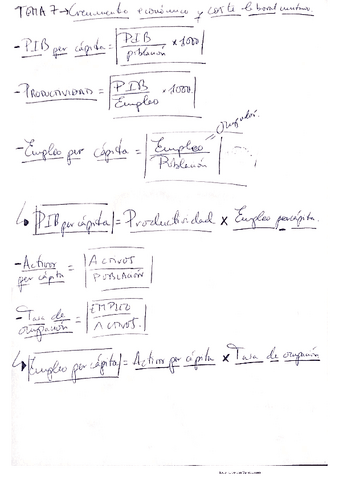 TEMA 7 → Crecimiento económico y coste laboral unitario.
- PIB per cápita = PIB / población × 1000
- PRODUCTIVIDAD = PIB / Empleo × 1000
= Ocupados.
- Empleo per cápita = Empleo / Población
↳ PIB per cápita = Productividad × Empleo per cápita.
- Activos per cápita = ACTIVOS / POBLACIÓN
- Tasa de ocupación = EMPLEO / ACTIVOS.
↳ Empleo per cápita = Activos per cápita × Tasa de ocupación